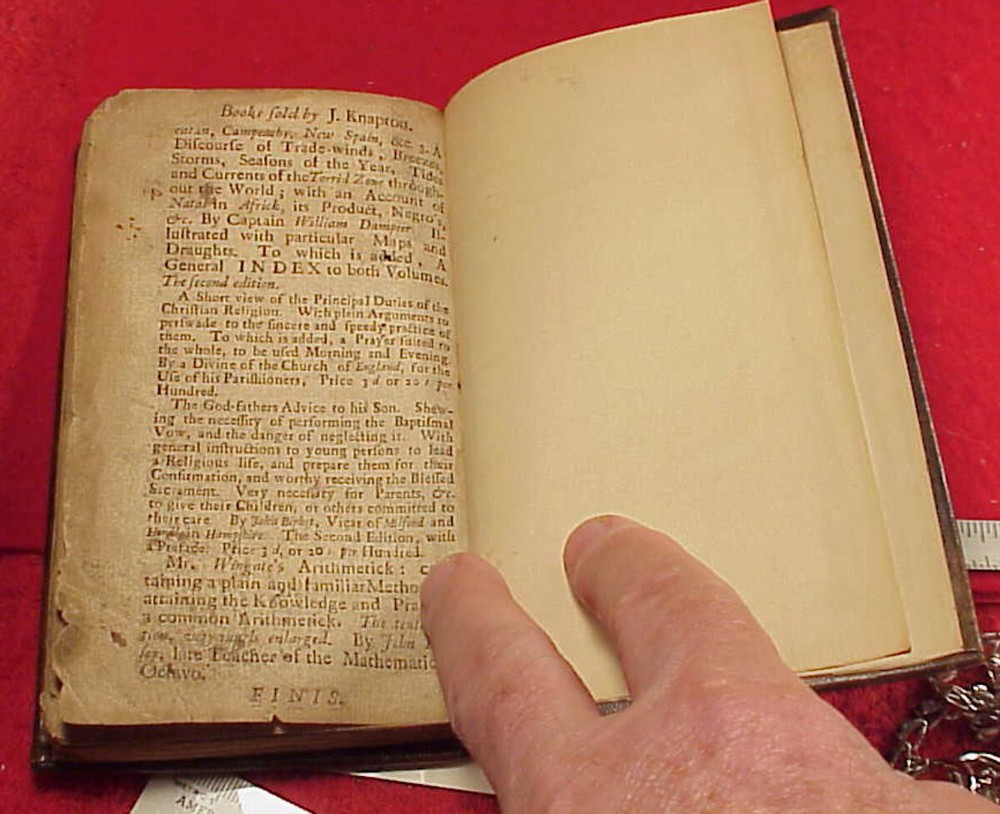 Books ſold by J. Knapton.
catan, Campeachy, New Spain, &c. 3. A
Diſcourſe of Trade-winds, Breezes,
Storms, Seaſons of the Year, Tides
and Currents of the Torrid Zone through-
out the World; with an Account of
Natal in Africk, its Product, Negro's,
&c. By Captain William Dampier. Il-
luſtrated with particular Maps and
Draughts. To which is added, A
General INDEX to both Volumes.
The ſecond edition.
A Short view of the Principal Duties of the
Chriſtian Religion. With plein Arguments to
perſwade to the ſincere and ſpeedy practice of
them. To which is added, a Prayer ſuited to
the whole, to be uſed Morning and Evening.
By a Divine of the Church of England, for the
Uſe of his Pariſhioners, Price 3 d or 20 s per
Hundred.
The God-fathers Advice to his Son. Shew-
ing the neceſſity of performing the Baptiſmal
Vow, and the danger of neglecting it. With
general inſtructions to young perſons to lead
a Religious life, and prepare them for their
Confirmation, and worthy receiving the Bleſſed
Sacrament. Very neceſſary for Parents, &c.
to give their Children, or others committed to
their care. By John Birket, Vicar of Milford and
in Hampſhire. The Second Edition, with
a Preface. Price 3 d, or 20 s per Hundred.
Mr. Wingate's Arithmetick:
taining a plain and familiar Metho
attaining the Knowledge and
a common Arithmetick. The
tion, very much enlarged. By John
late Teacher of the Mathematic
Octavo.
FINIS.